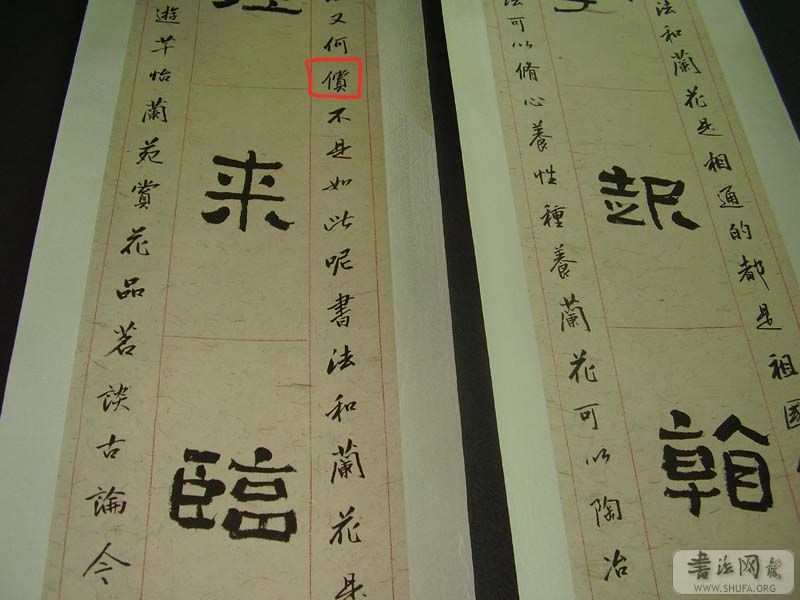 法和蘭花是相通的都是祖國
起翰
法可以脩心養性種養蘭花可以陶冶
又何償不是如此呢書法和蘭花是
来臨
遊芊怡蘭苑賞花品茗談古論今
書法网
WWW.SHUFA.ORG